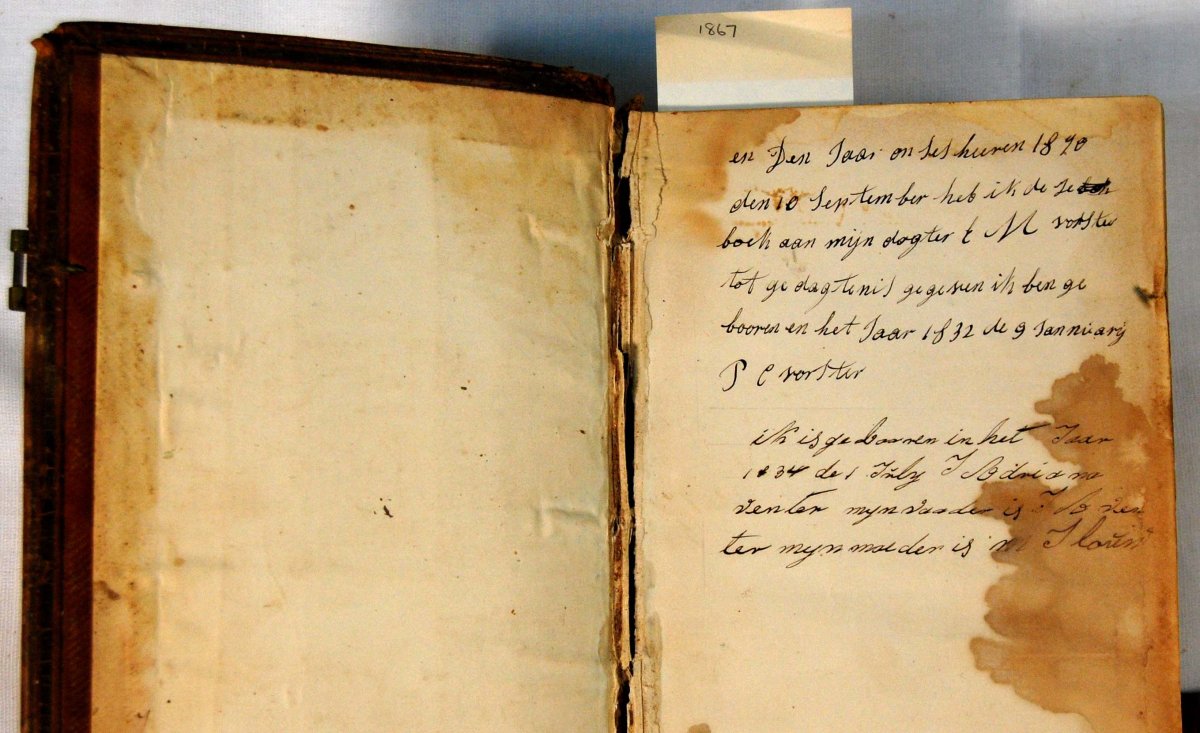 1867
en Den Jaar onses heeren 1890
den 10 September heb ik de se
boek aan mijn dogter t M vorster
tot ge dagtenis gegeven ik ben ge
booren en het Jaar 1832 de 9 Jannuarij
P C vorster
ik is ge booren in het Jaar
1834 de 1 July J Adriana
venter mijn vaader is J A ven
ter mijn moeder is